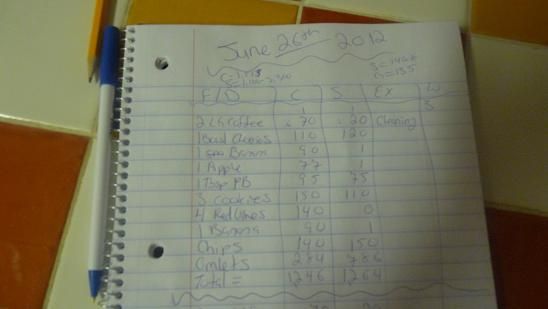 June 26th 2012
F/D C S Ex W
S
2 LG Coffee 70 20 Cleaning
1 Bowl Cheerios 110 120
1 Banana 90 1
1 Apple 77 1
1 Tbsp PB 95 75
3 cookies 150 110
4 Red Vines 140 0
1 Banana 90 1
Chips 140 150
Omlets 284 786
Total = 1246 1264